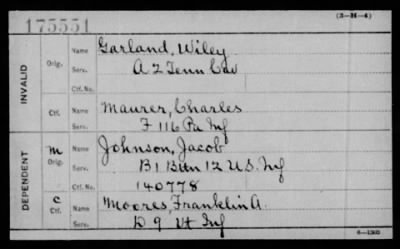 175551
(3-H-4)
INVALID
Orig.
Name Garland, Wiley
Serv. A 2 Tenn Cav
Ctf. No.
Ctf.
Name Maurer, Charles
Serv. F 116 Pa Inf
DEPENDENT
M
Orig.
Name Johnson, Jacob
Serv. B 1 Battn 12 U.S. Inf
Ctf. No. 140778
C
Ctf.
Name Moores, Franklin A.
Serv. D 9 Vt Inf